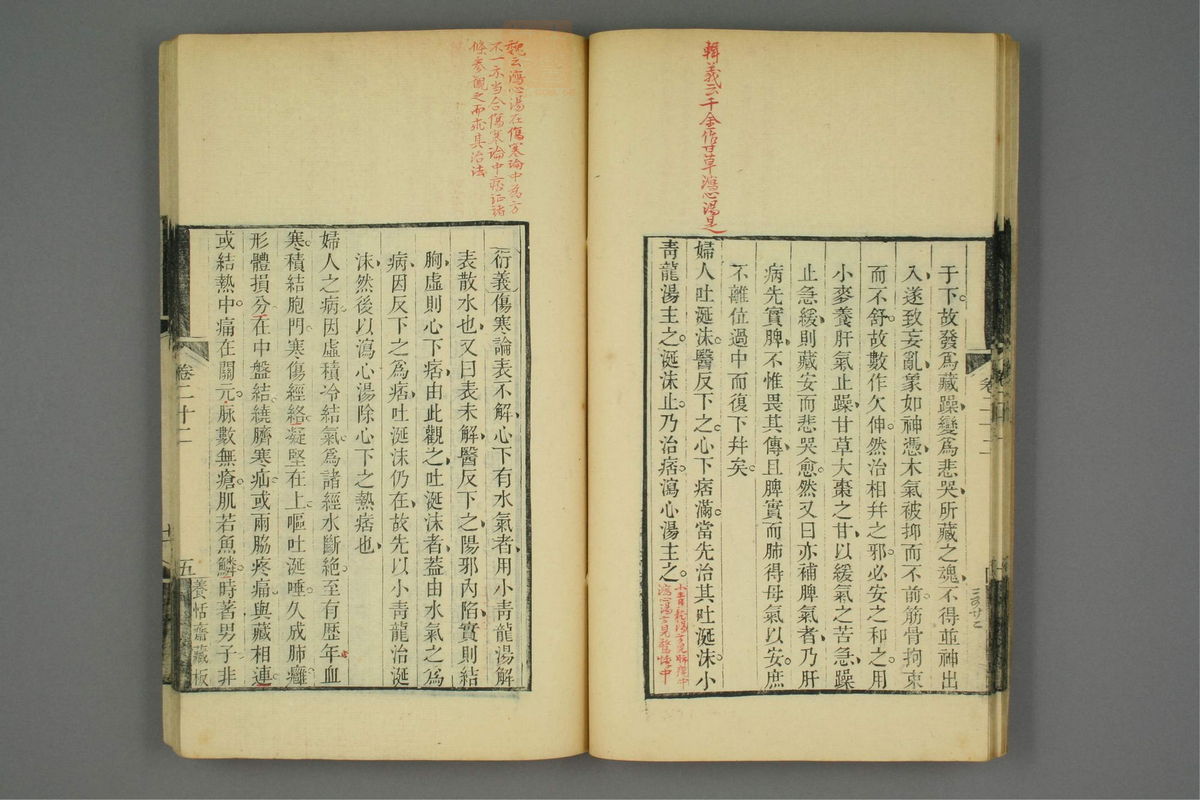 輯義云千金作甘草瀉心湯是
于下故發爲藏躁變爲悲哭所藏之魂不得並神出
入遂致妄亂象如神憑木氣被抑而不前筋骨拘束
而不舒故數作欠伸然治相幷之邪必安之和之用
小麥養肝氣止躁甘草大棗之甘以緩氣之苦急躁
止急緩則藏安而悲哭愈然又曰亦補脾氣者乃肝
病先實脾不惟畏其傳且脾實而肺得母氣以安庶
不離位過中而復下幷矣
婦人吐涎沫醫反下之心下痞滿當先治其吐涎沫小
靑龍湯主之涎沫止乃治痞瀉心湯主之
小青龍湯方見肺癰中
瀉心湯方見驚悸中
魏云瀉心湯在傷寒論中爲方
不一亦当合傷寒論中痞証諸
條參觀之而求其治法
衍義傷寒論表不解心下有水氣者用小靑龍湯解
表散水也又曰表未解醫反下之陽邪內陷實則結
胸虛則心下痞由此觀之吐涎沫者蓋由水氣之爲
病因反下之爲痞吐涎沫仍在故先以小靑龍治涎
沫然後以瀉心湯除心下之熱痞也
婦人之病因虛積冷結氣爲諸經水斷絶至有歷年血
寒積結胞門寒傷經絡凝堅在上嘔吐涎唾久成肺癰
形體損分在中盤結繞臍寒疝或兩脇疼痛與藏相連
或結熱中痛在關元脉數無瘡肌若魚鱗時著男子非
卷二十二
五
養恬齋藏板